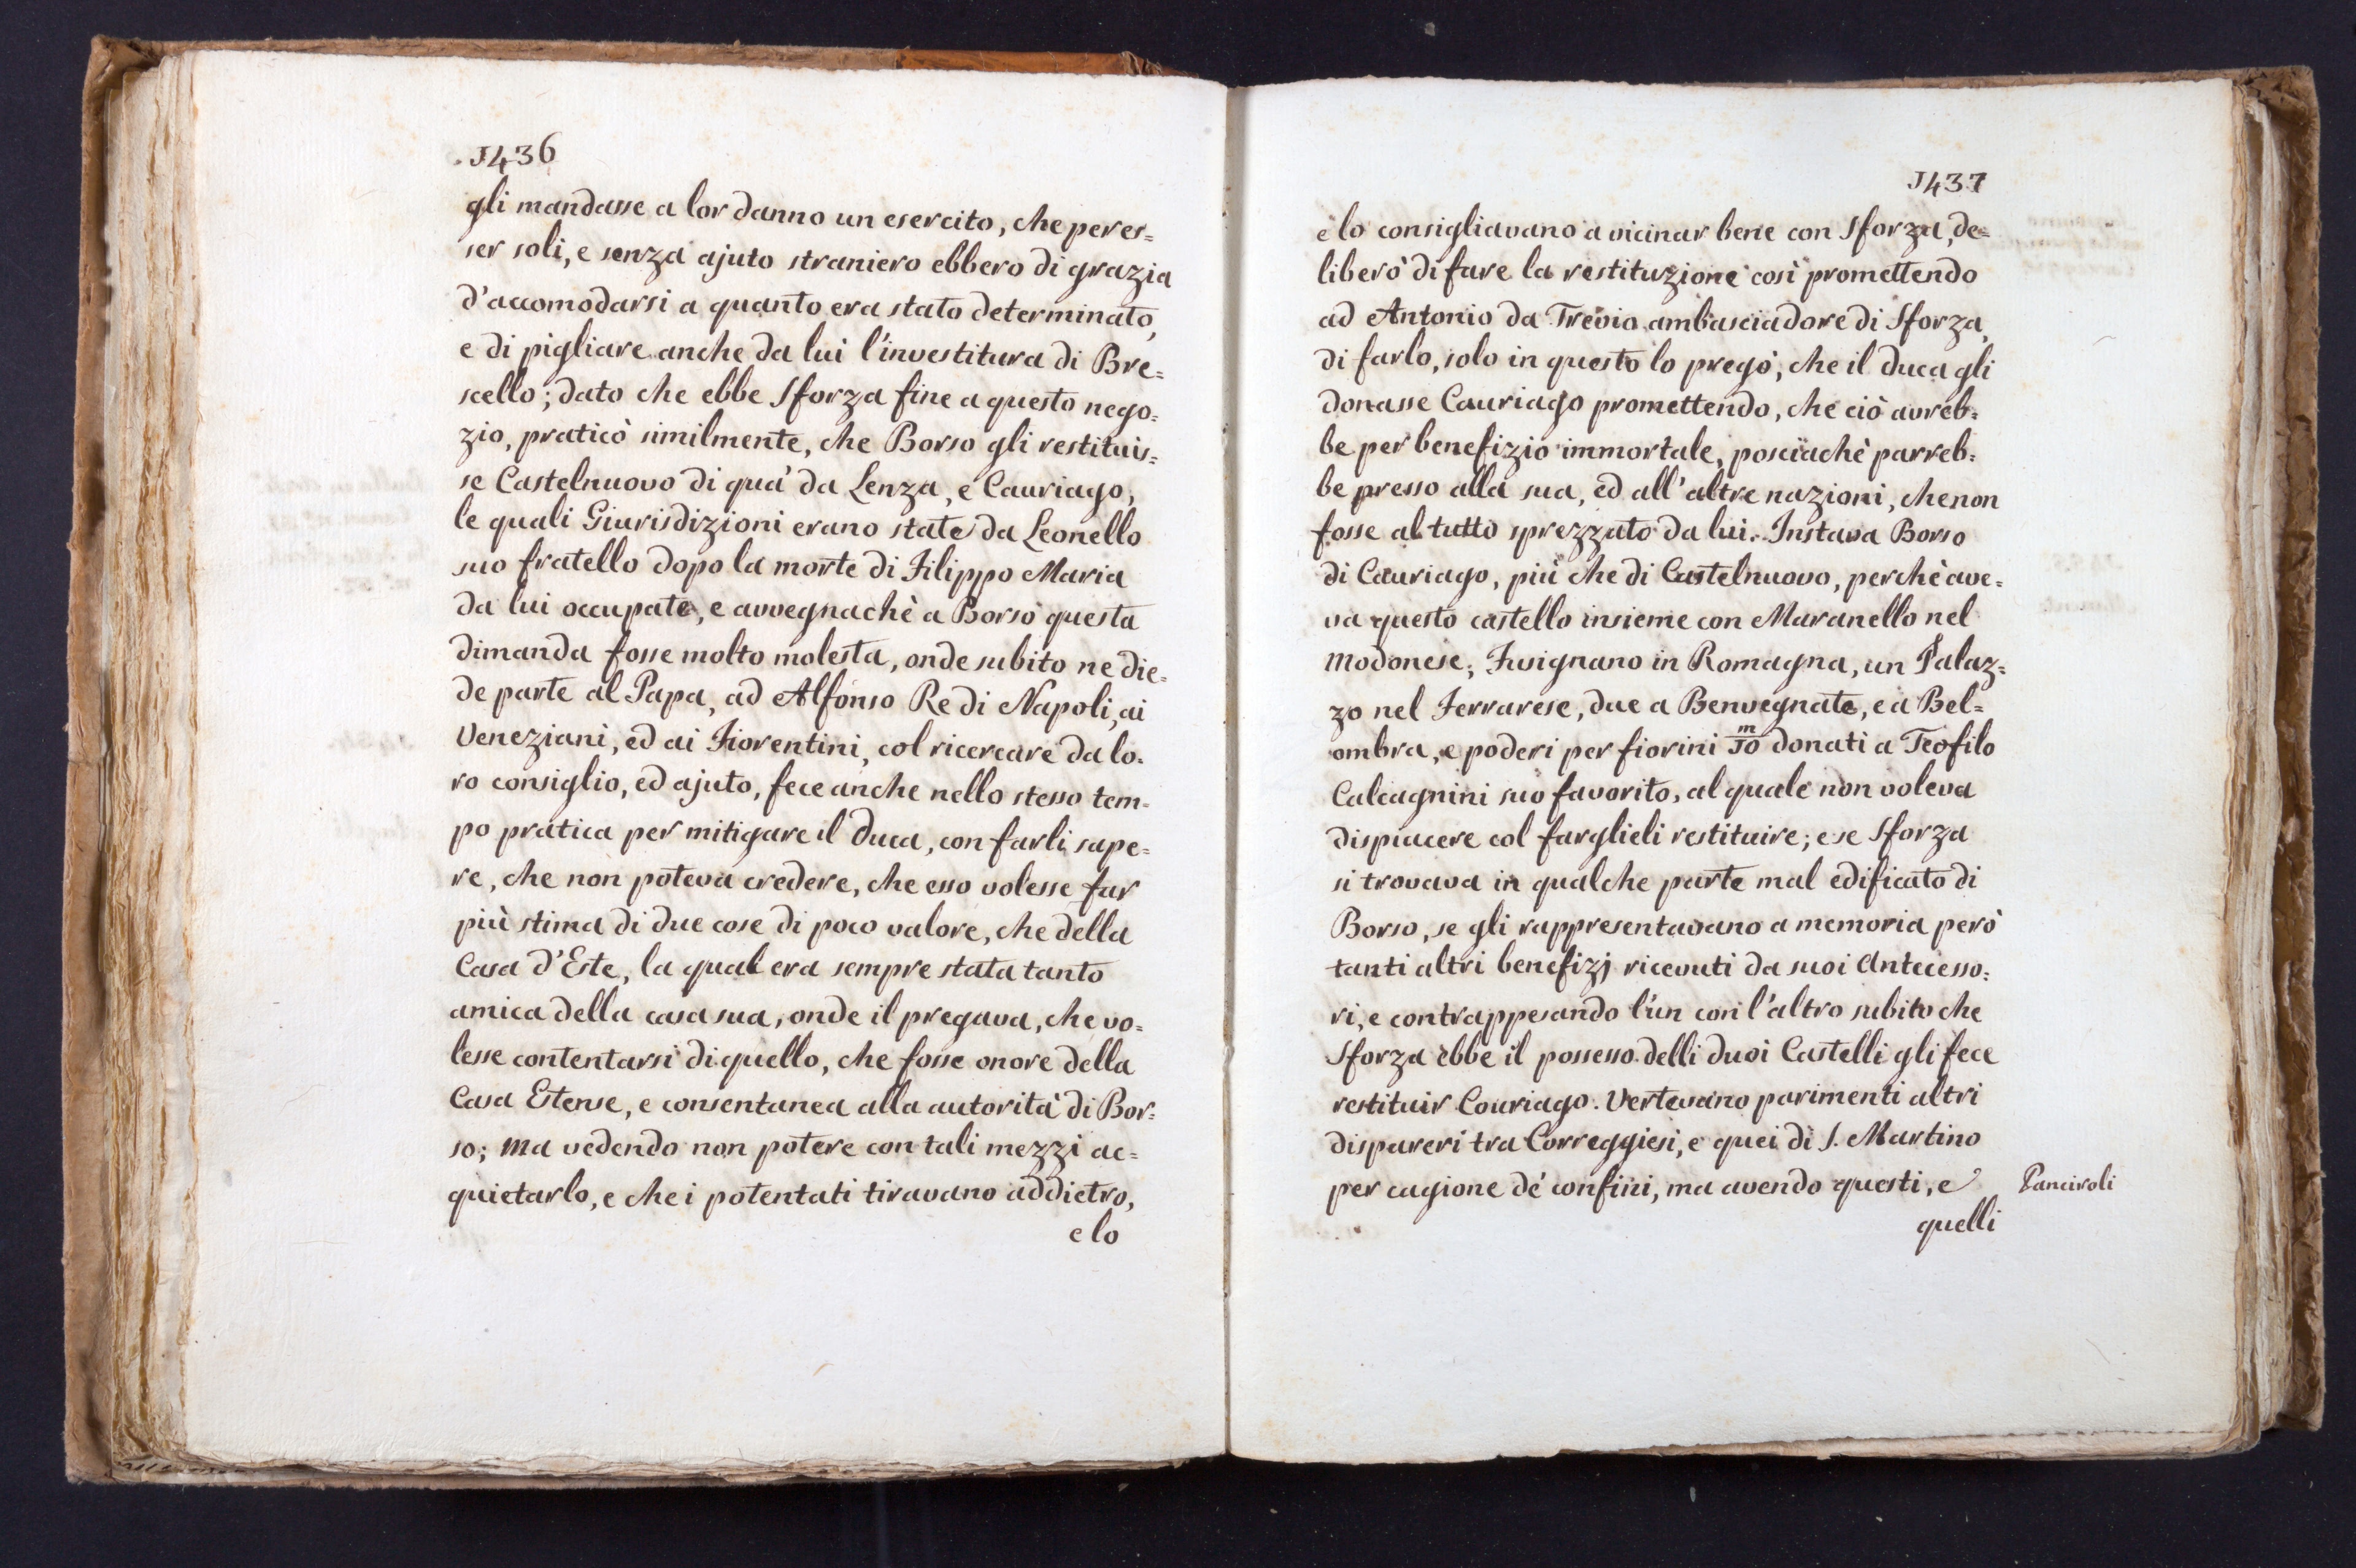 1436
gli mandasse a lor danno un esercito, che per es=
ser soli, e senza ajuto straniero ebbero di grazia
d'accomodarsi a quanto era stato determinato,
e di pigliare anche da lui l'investitura di Bre=
scello; dato che ebbe Sforza fine a questo nego=
zio, praticò similmente, che Borso gli restituis=
se Castelnuovo di quà da Lenza, e Cauriago,
le quali Giurisdizioni erano state da Leonello
suo fratello dopo la morte di Filippo Maria
da lui occupate, e avvegnachè a Borso questa
dimanda fosse molto molesta, onde subito ne die=
de parte al Papa, ad Alfonso Re di Napoli, ai
Veneziani, ed ai Fiorentini, col ricercare da lo=
ro consiglio, ed ajuto, fece anche nello stesso tem=
po pratica per mitigare il Duca, con farli sape=
re, che non poteva credere, che esso volesse far
più stima di due cose di poco valore, che della
Casa d'Este, la qual era sempre stata tanto
amica della casa sua, onde il pregava, che vo=
lesse contentarsi di quello, che fosse onore della
Casa Estense, e consentanea alla autorità di Bor=
so; Ma vedendo non potere con tali mezzi ac=
quietarlo, e che i potentati tiravano addietro,
e lo
1437
e lo consigliavano a vicinar bene con Sforza, de=
liberò di fare la restituzione così promettendo
ad Antonio da Trevio ambasciadore di Sforza,
di farlo, solo in questo lo pregò, che il Duca gli
donasse Cauriago promettendo, che ciò avreb=
be per benefizio immortale, posciachè parreb=
be presso alla sua, ed all'altre nazioni, che non
fosse al tutto sprezzato da lui. Instava Borso
di Cauriago, più che di Castelnuovo, perchè ave=
va questo castello insieme con Maranello nel
Modonese; Fusignano in Romagna, un Palaz=
zo nel Ferrarese, due a Benvegnate, e a Bel=
ombra, e poderi per fiorini 10 m donati a Teofilo
Calcagnini suo favorito, al quale non voleva
dispiacere col farglieli restituire; e se Sforza
si trovava in qualche parte mal edificato di
Borso, se gli rappresentavano a memoria però
tanti altri benefizj ricevuti da suoi Antecesso=
ri, e contrappesando l'un con l'altro subito che
Sforza ebbe il possesso delli duoi Castelli gli fece
restituir Couriago. Vertevano parimenti altri
dispareri tra Correggiesi, e quei di S. Martino
per cagione de' confini, ma avendo questi, e
Panciroli
quelli